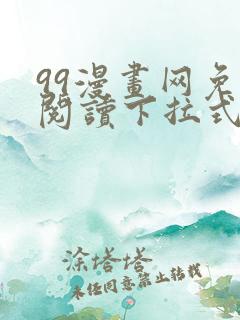 99漫畫网免
閱讀下拉式
涂塔塔
未经同意禁止转载